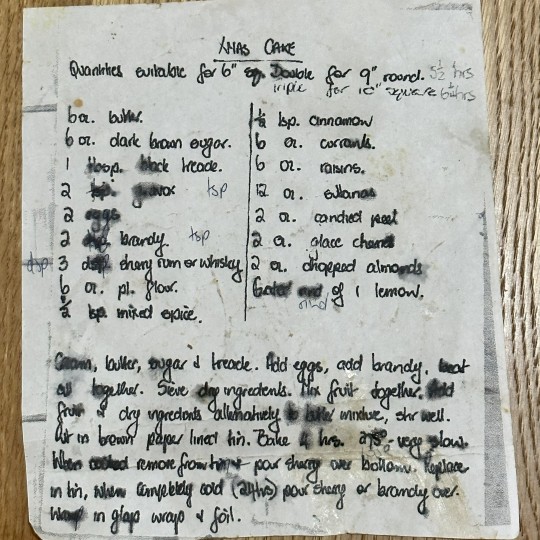 XMAS CAKE
Quantities suitable for 6" sq. Double for 9" round. 5½ hrs
triple for 10" square 6½ hrs
6 oz. butter.
6 oz. dark brown sugar.
1 tbsp. black treacle.
2 tsp
2 eggs
2 brandy. tsp
dsp 3 dsp sherry rum or whisky
6 oz. pl. flour.
½ tsp. mixed spice.
tsp. cinnamon
6 oz. currants.
6 oz. raisins.
12 oz. sultanas
2 oz. candied peel
2 oz. glace cherries
2 oz. chopped almonds
Grated rind of 1 lemon.
rind
Cream, butter, sugar & treacle. Add eggs, add brandy, beat
all together. Sieve dry ingredients. Mix fruit together. Add
fruit & dry ingredients alternatively to butter mixture, stir well.
Put in brown paper lined tin. Bake 4 hrs. 275° very slow.
When cooked remove from tin + pour sherry over bottom. Replace
in tin, when completely cold (24hrs) pour sherry or brandy over.
Wrap in glap wrap & foil.